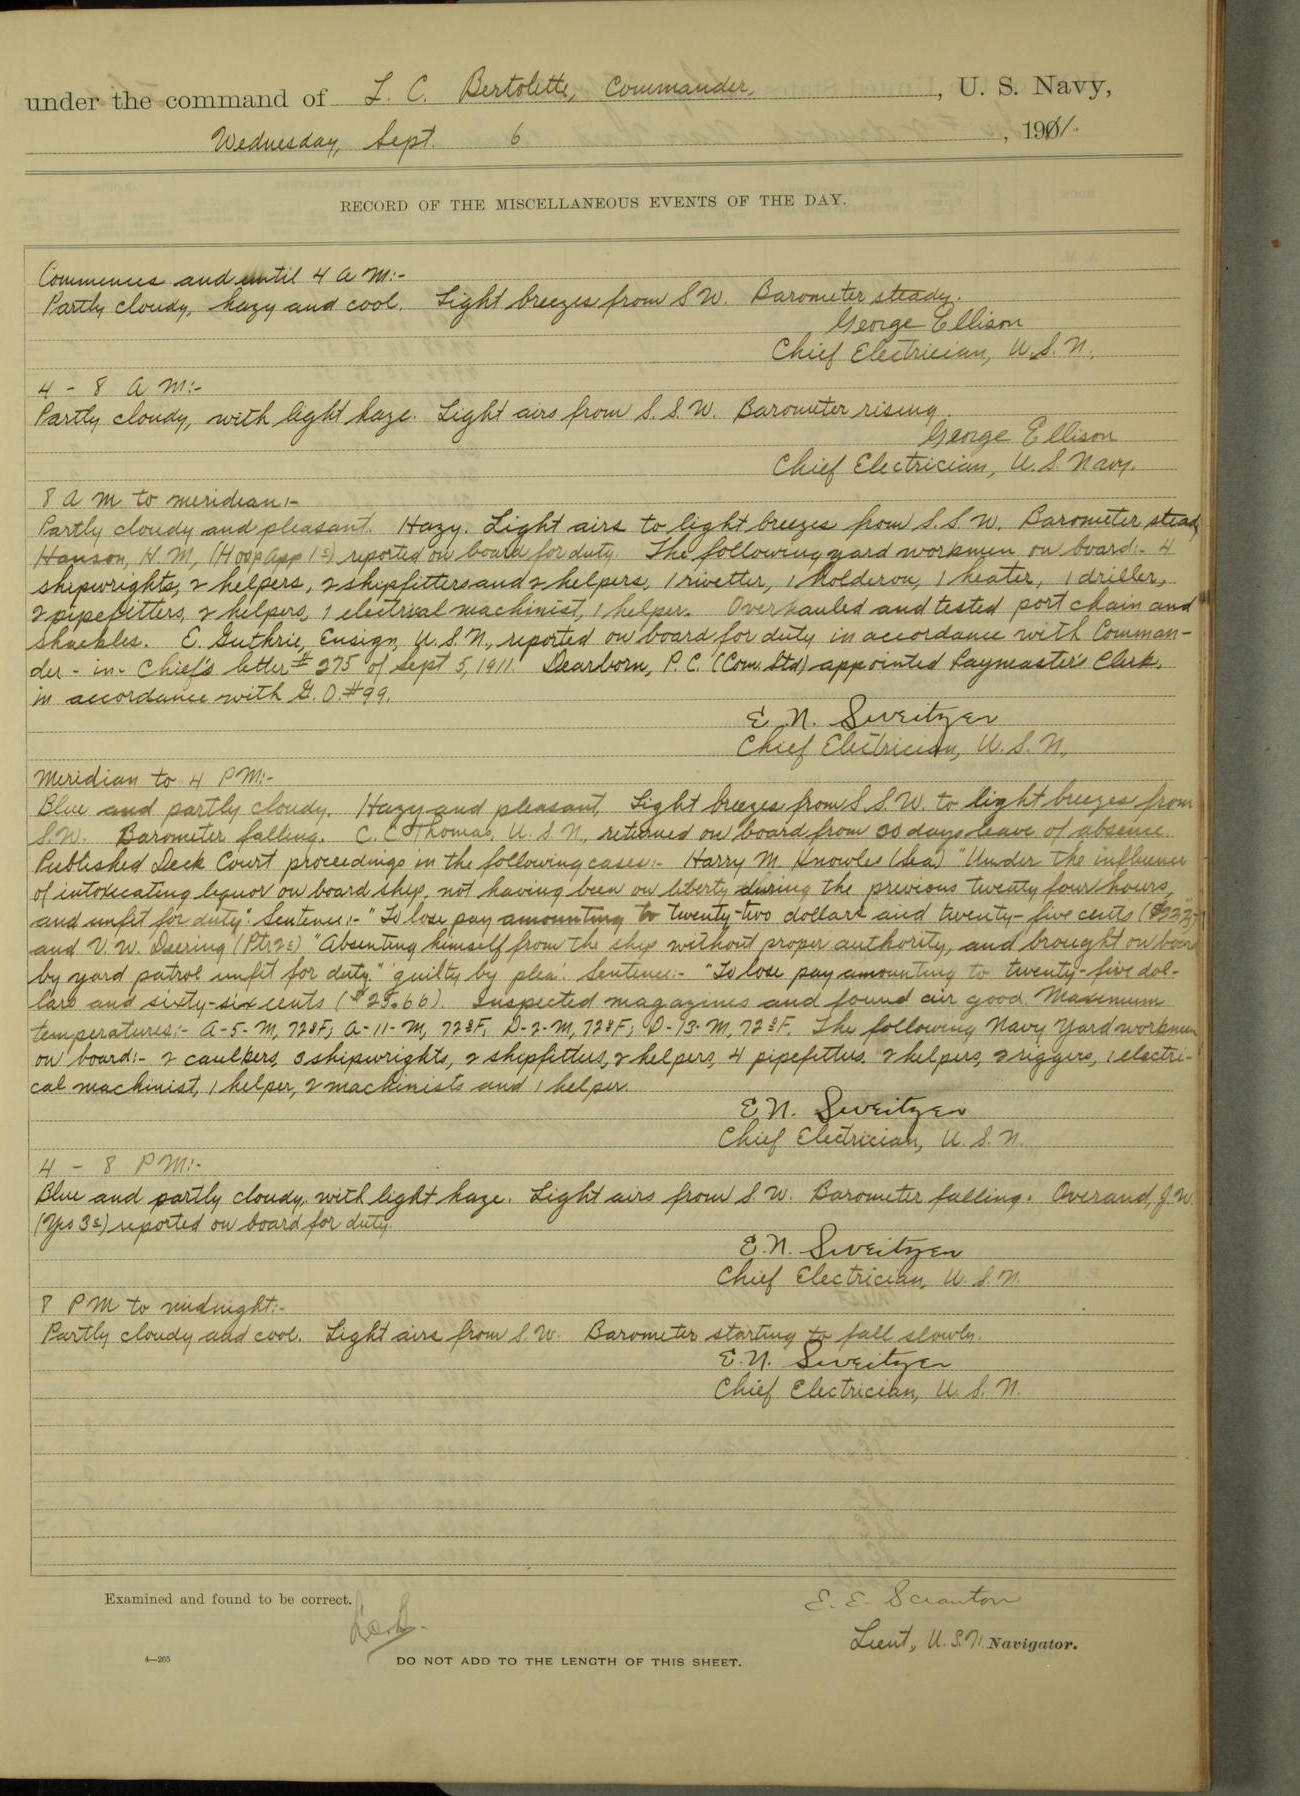 under the command of L. C. Bertolette, Commander, , U. S. Navy,
Wednesday, Sept. 6 , 1911.
RECORD OF THE MISCELLANEOUS EVENTS OF THE DAY.
Commences and until 4 A M:-
Partly cloudy, hazy and cool. Light breezes from S W. Barometer steady.
George Ellison
Chief Electrician, U. S. N.
4 - 8 A M:-
Partly cloudy, with light haze. Light airs from S. S. W. Barometer rising.
George Ellison
Chief Electrician, U. S. Navy.
8 A M to meridian:-
Partly cloudy and pleasant. Hazy. Light airs to light breezes from S. S. W. Barometer stead
Hanson, H. M, (Hosp App 1c) reported on board for duty. The following yard workmen on board:- 4
shipwrights, 2 helpers, 2 shipfitters and 2 helpers, 1 rivetter, 1 holderon, 1 heater, 1 driller,
2 pipefitters, 2 helpers, 1 electrical machinist, 1 helper. Overhauled and tested port chain and
shackles. E. Guthrie, Ensign, U. S. N., reported on board for duty in accordance with Comman-
der - in - Chief's letter # 275 of Sept 5, 1911. Dearborn, P. C. (Com. Std) appointed Paymaster's Clerk,
in accordance with G. O. #99.
E. N. Sweitzer
Chief Electrician, U. S. N.
Meridian to 4 P M:-
Blue and partly cloudy. Hazy and pleasant, Light breezes from S S. W. to light breezes from
S. W. Barometer falling. C. C. Thomas, U. S. N., returned on board from 30 days leave of absence.
Published Deck Court proceedings in the following cases:- Harry M. Knowles (Sea) "Under the influence
of intoxicating liquor on board ship, not having been on liberty during the previous twenty four hours,
and unfit for duty". Sentence:- "To lose pay amounting to twenty-two dollars and twenty-five cents
and V. W. Deering (Ptr 2c) "Absenting himself from the ship without proper authority, and brought on board
by yard patrol unfit for duty." guilty by plea. Sentence:- "To lose pay amounting to twenty-five dol-
lars and sixty-six cents ($25.66). Inspected magazines and found air good. Maximum
temperatures:- A-5-M, 72°F; A-11-M, 72°F, D-2-M, 72°F; D-13-M, 72°F. The following Navy Yard workmen
on board:- 2 caulkers, 3 shipwrights, 2 shipfitters, 2 helpers, 4 pipefitters. 2 helpers, 2 riggers, 1 electri-
cal machinist, 1 helper, 2 machinists and 1 helper.
E N. Sweitzer
Chief Electrician, U. S. N.
4 - 8 P M:-
Blue and partly cloudy, with light haze. Light airs from S W. Barometer falling. Overand, J. W.
(Yeo 3c) reported on board for duty.
E. N. Sweitzer
Chief Electrician, U. S. N.
8 P M to midnight:-
Partly cloudy and cool. Light airs from S W. Barometer starting to fall slowly.
E. N. Sweitzer
Chief Electrician, U. S. N.
Examined and found to be correct.
E. E. Scranton
Lieut, U. S. N. Navigator.
4—265
DO NOT ADD TO THE LENGTH OF THIS SHEET.